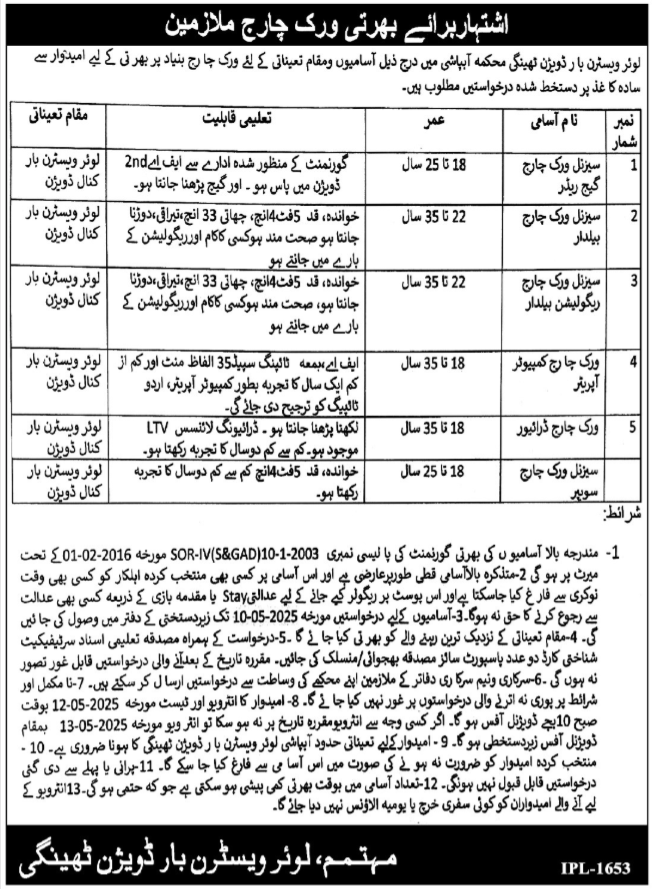 اشتہار برائے بھرتی ورک چارج ملازمین
لوئر ویسٹرن بار ڈویژن ٹھینگی محکمہ آبپاشی میں درج ذیل آسامیوں ومقام تعیناتی کے لئے ورک چارج بنیاد پر بھرتی کے لیے امیدوار سے
سادہ کاغذ پر دستخط شدہ درخواستیں مطلوب ہیں۔
نمبر شمار	نام آسامی	عمر	تعلیمی قابلیت	مقام تعیناتی
1	سیزنل ورک چارج	18 تا 25 سال	گورنمنٹ کے منظور شدہ ادارے سے ایف اے 2nd	لوئر ویسٹرن بار
گیج ریڈر	ڈویژن میں پاس ہو۔ اور گیج پڑھنا جانتا ہو۔	کنال ڈویژن
2	سیزنل ورک چارج	22 تا 35 سال	خواندہ، قد 5فٹ4انچ، چھاتی 33 انچ،تیراقی،دوڑنا	لوئر ویسٹرن بار
بیلدار	جانتا ہو صحت مند ہوکسی کاکام اورریگولیشن کے	کنال ڈویژن
بارے میں جانتے ہو
3	سیزنل ورک چارج	22 تا 35 سال	خواندہ، قد 5فٹ4انچ، چھاتی 33 انچ،تیراقی،دوڑنا	لوئر ویسٹرن بار
ریگولیشن بیلدار	جانتا ہو، صحت مند ہوکسی کاکام اورریگولیشن کے	کنال ڈویژن
بارے میں جانتے ہو
4	ورک چارج کمپیوٹر	18 تا 35 سال	ایف اے،بمعہ ٹائپنگ سپیڈ35 الفاظ منٹ اور کم از	لوئر ویسٹرن بار
آپریٹر	کم ایک سال کا تجربہ بطور کمپیوٹر آپریٹر، اردو	کنال ڈویژن
ٹائپنگ کو ترجیح دی جائے گی۔
5	ورک چارج ڈرائیور	18 تا 35 سال	لکھنا پڑھنا جانتا ہو۔ ڈرائیونگ لائسنس LTV	لوئر ویسٹرن بار
موجود ہو۔کم سے کم دوسال کا تجربہ رکھتا ہو۔	کنال ڈویژن
سیزنل ورک چارج	18 تا 25 سال	خواندہ، قد 5فٹ4انچ کم سے کم دوسال کا تجربہ	لوئر ویسٹرن بار
سویپر	رکھتا ہو۔	کنال ڈویژن
شرائط:
1- مندرجہ بالا آسامیوں کی بھرتی گورنمنٹ کی پالیسی نمبری SOR-IV(S&GAD)10-1-2003 مورخہ 01-02-2016 کے تحت
میرٹ پر ہو گی 2-متذکرہ بالاآسامی قطی طورپرعارضی ہے اور اس آسامی پر کسی بھی منتخب کردہ اہلکار کو کسی بھی وقت
نوکری سے فارغ کیا جاسکتا ہے اور اس پوسٹ پر ریگولر کیے جانے کے لیے عدالتیStay یا مقدمہ بازی کے ذریعہ کسی بھی عدالت
سے رجوع کرنے کا حق نہ ہوگا۔3-آسامیوں کےلیے درخواستیں مورخہ 10-05-2025 تک زیردستخطی کے دفتر میں وصول کی جائیں
گی۔ 4-مقام تعیناتی کے نزدیک ترین رہنے والے کو بھرتی کیا جائے گا۔5-درخواست کے ہمراہ مصدقہ تعلیمی اسناد سرٹیفیکیٹ
شناختی کارڈ دو عدد پاسپورٹ سائز مصدقہ بھجوائی/منسلک کی جائیں۔ مقررہ تاریخ کے بعدآنے والی درخواستیں قابل غور تصور
نہ ہوں گی۔6-سرکاری ونیم سرکاری دفاتر کے ملازمین اپنے محکمے کی وساطت سے درخواستیں ارسال کر سکتے ہیں۔7-نا مکمل اور
شرائط پر پوری نہ اترنے والی درخواستوں پر غور نہیں کیا جائے گا۔ 8- امیدوار کا انٹرویو اور ٹیسٹ مورخہ 12-05-2025 بوقت
صبح 10بجے ڈویژنل آفس ہو گا۔ اگر کسی وجہ سے انٹرویومقررہ تاریخ پر نہ ہو سکا تو انٹرویو مورخہ 13-05-2025 بمقام
ڈویژنل آفس زیردستخطی ہو گا۔ 9- امیدوار کےلیے تعیناتی حدود آبپاشی لوئر ویسٹرن بار ڈویژن ٹھینگی کا ہونا ضروری ہے۔ 10-
منتخب کردہ امیدوار کو ضرورت نہ ہونے کی صورت میں اس آسامی سے فارغ کیا جا سکے گا۔ 11-پرانی یا پہلے سے دی گئی
درخواستیں قابل قبول نہیں ہونگی۔ 12-تعداد آسامی میں بوقت بھرتی کمی پیشی ہو سکتی ہے جو کہ حتمی ہو گی۔13انٹرویو کے
لیے آنے والے امیدواران کو کوئی سفری خرچ یا یومیہ الاؤنس نہیں دیا جائے گا۔
مہتمم، لوئر ویسٹرن بار ڈویژن ٹھینگی
IPL-1653